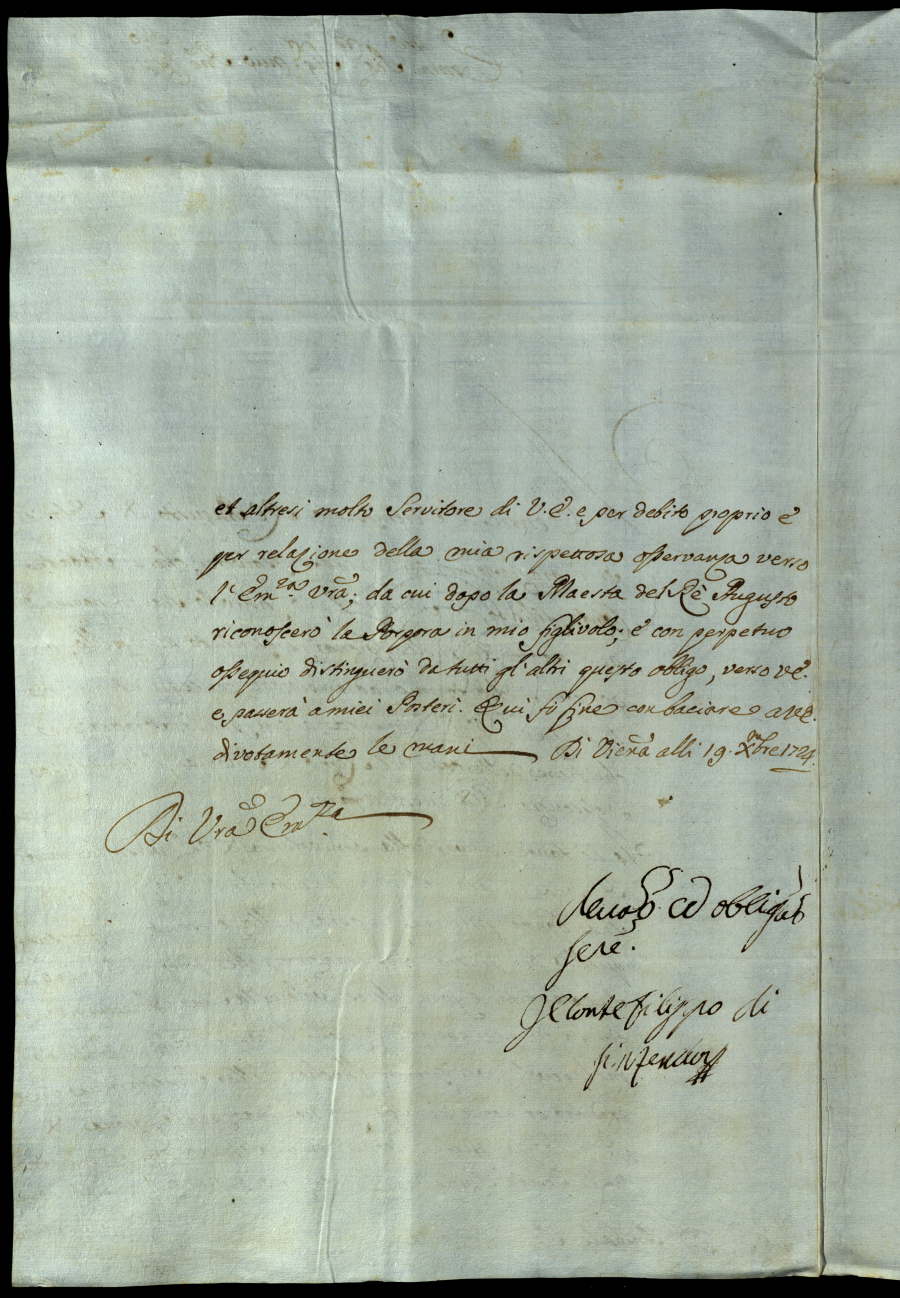 et altresi molto Servitore di V. E. e per debito proprio e
per relazione della mia rispettosa osservanza verso
l' Em.za Vra; da cui dopo la Maesta del Rè Augusto
riconoscerò la Porpora in mio figlivolo; e con perpetuo
ossequio distinguerò da tutti gl' altri questo obligo, verso V. E.
e passerà a miei Posteri. E qui fò fine con baciare a V. E.
divotamente le mani Di Viena alli 19. Xbre 1724.
Di Vra Em.za
devo.o ed obligat
sere.
Il Conte filippo di
sinzendorf